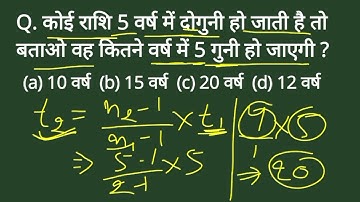 Q. कोई राशि 5 वर्ष में दोगुनी हो जाती है तो
बताओ वह कितने वर्ष में 5 गुनी हो जाएगी ?
(a) 10 वर्ष (b) 15 वर्ष (c) 20 वर्ष (d) 12 वर्ष
t₂ = (n₂-1)/(n₁-1) × t₁
⇒ (5-1)/(2-1) × 5
4/1 × 5
⇒ 20